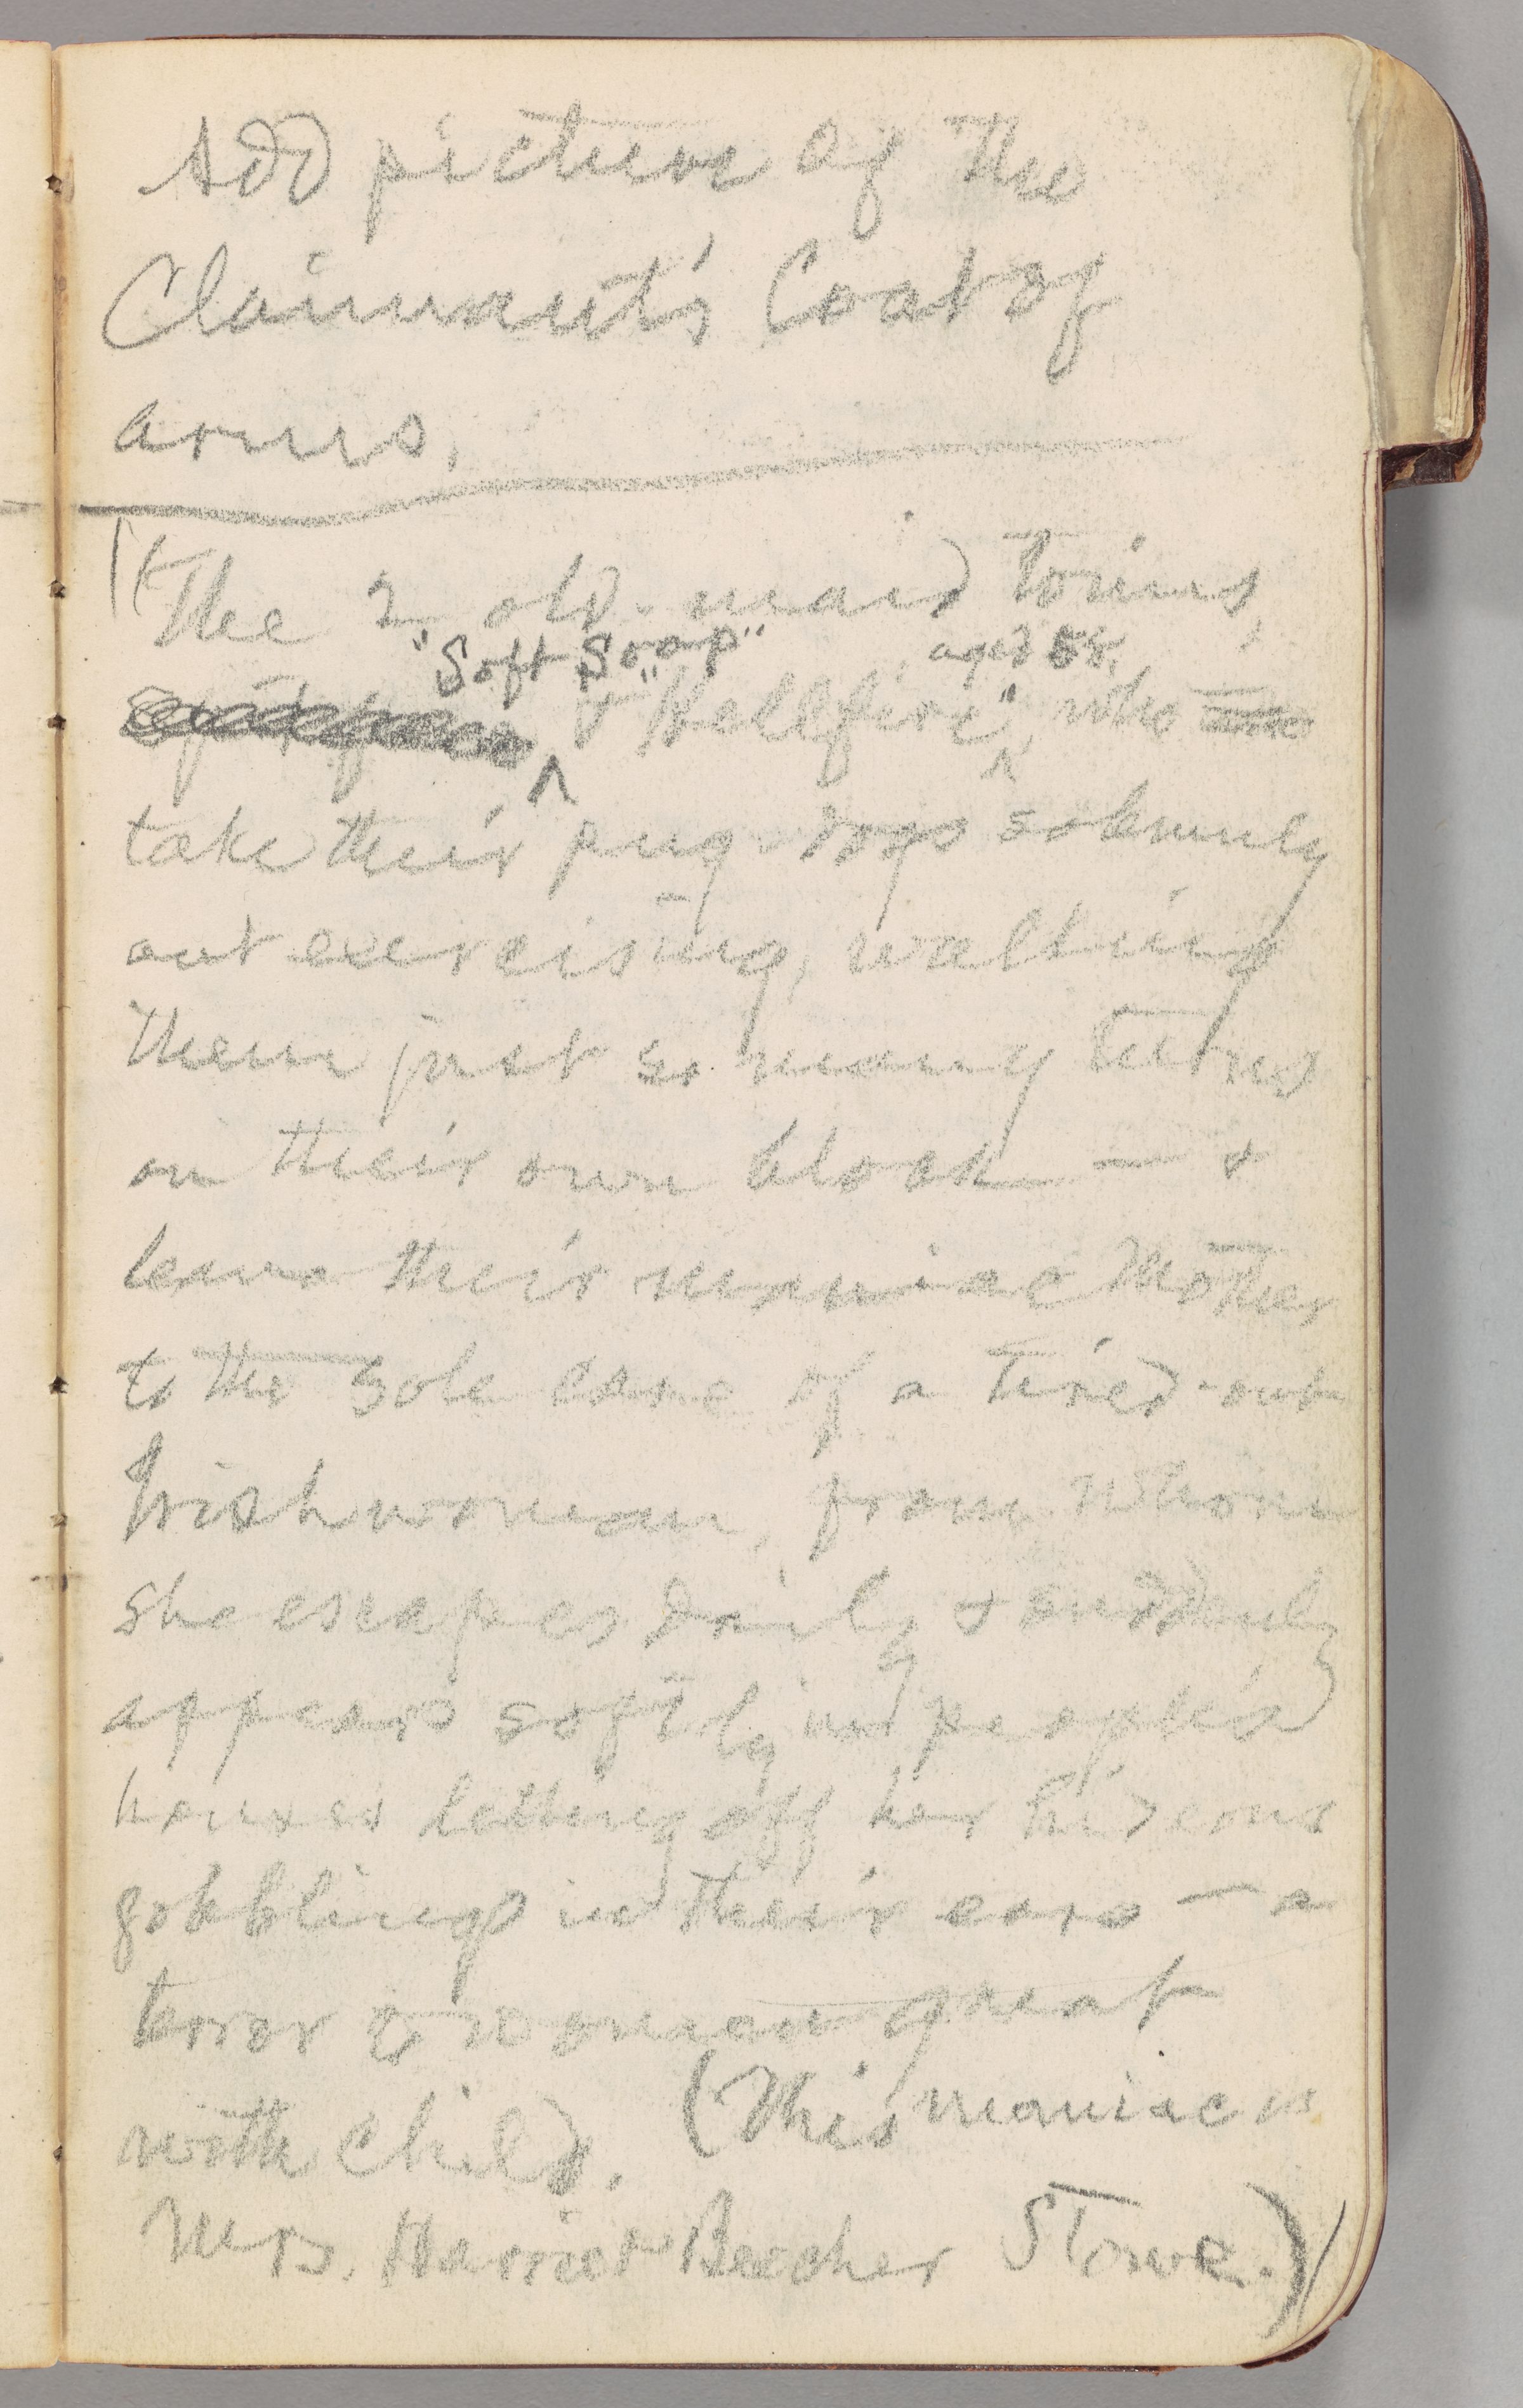 Add picture of the
Claimant's Coat of
arms.
(The 2 old-maid twins,
"Soft Soap" aged 58,
& "Hellfire", who
take their pug-dogs solemnly
out exercising, walking
them just so many times
in their own block — &
leave their maniac mother
to the sole care of a tired-out
Irishwoman, from whom
she escapes daily & suddenly
appears softly in people's
houses letting off her hideous
gobblings in their ears — a
terror to women great
with child. (This maniac is
Mrs. Harriet Beecher Stowe.)